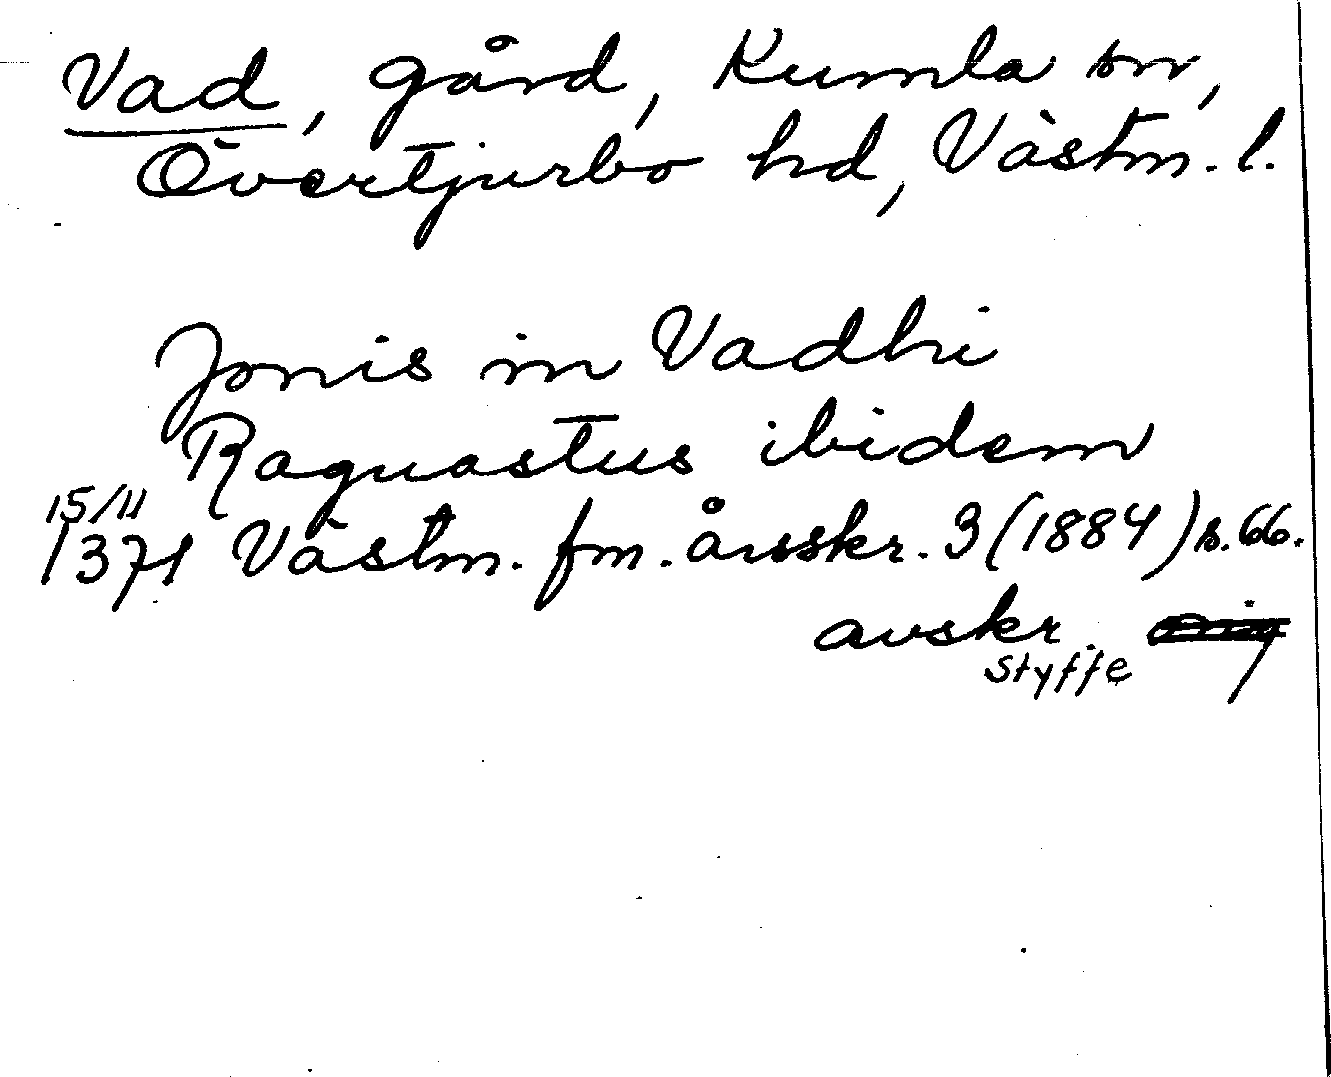 Vad, gård, Kumla sn,
Övertjurbo hd, Västm. l.
Jonis in Vadhi
Raguastus ibidem
15/11
1371 Västm. fm. årsskr. 3 (1884) s. 66.
avskr.
Styffe